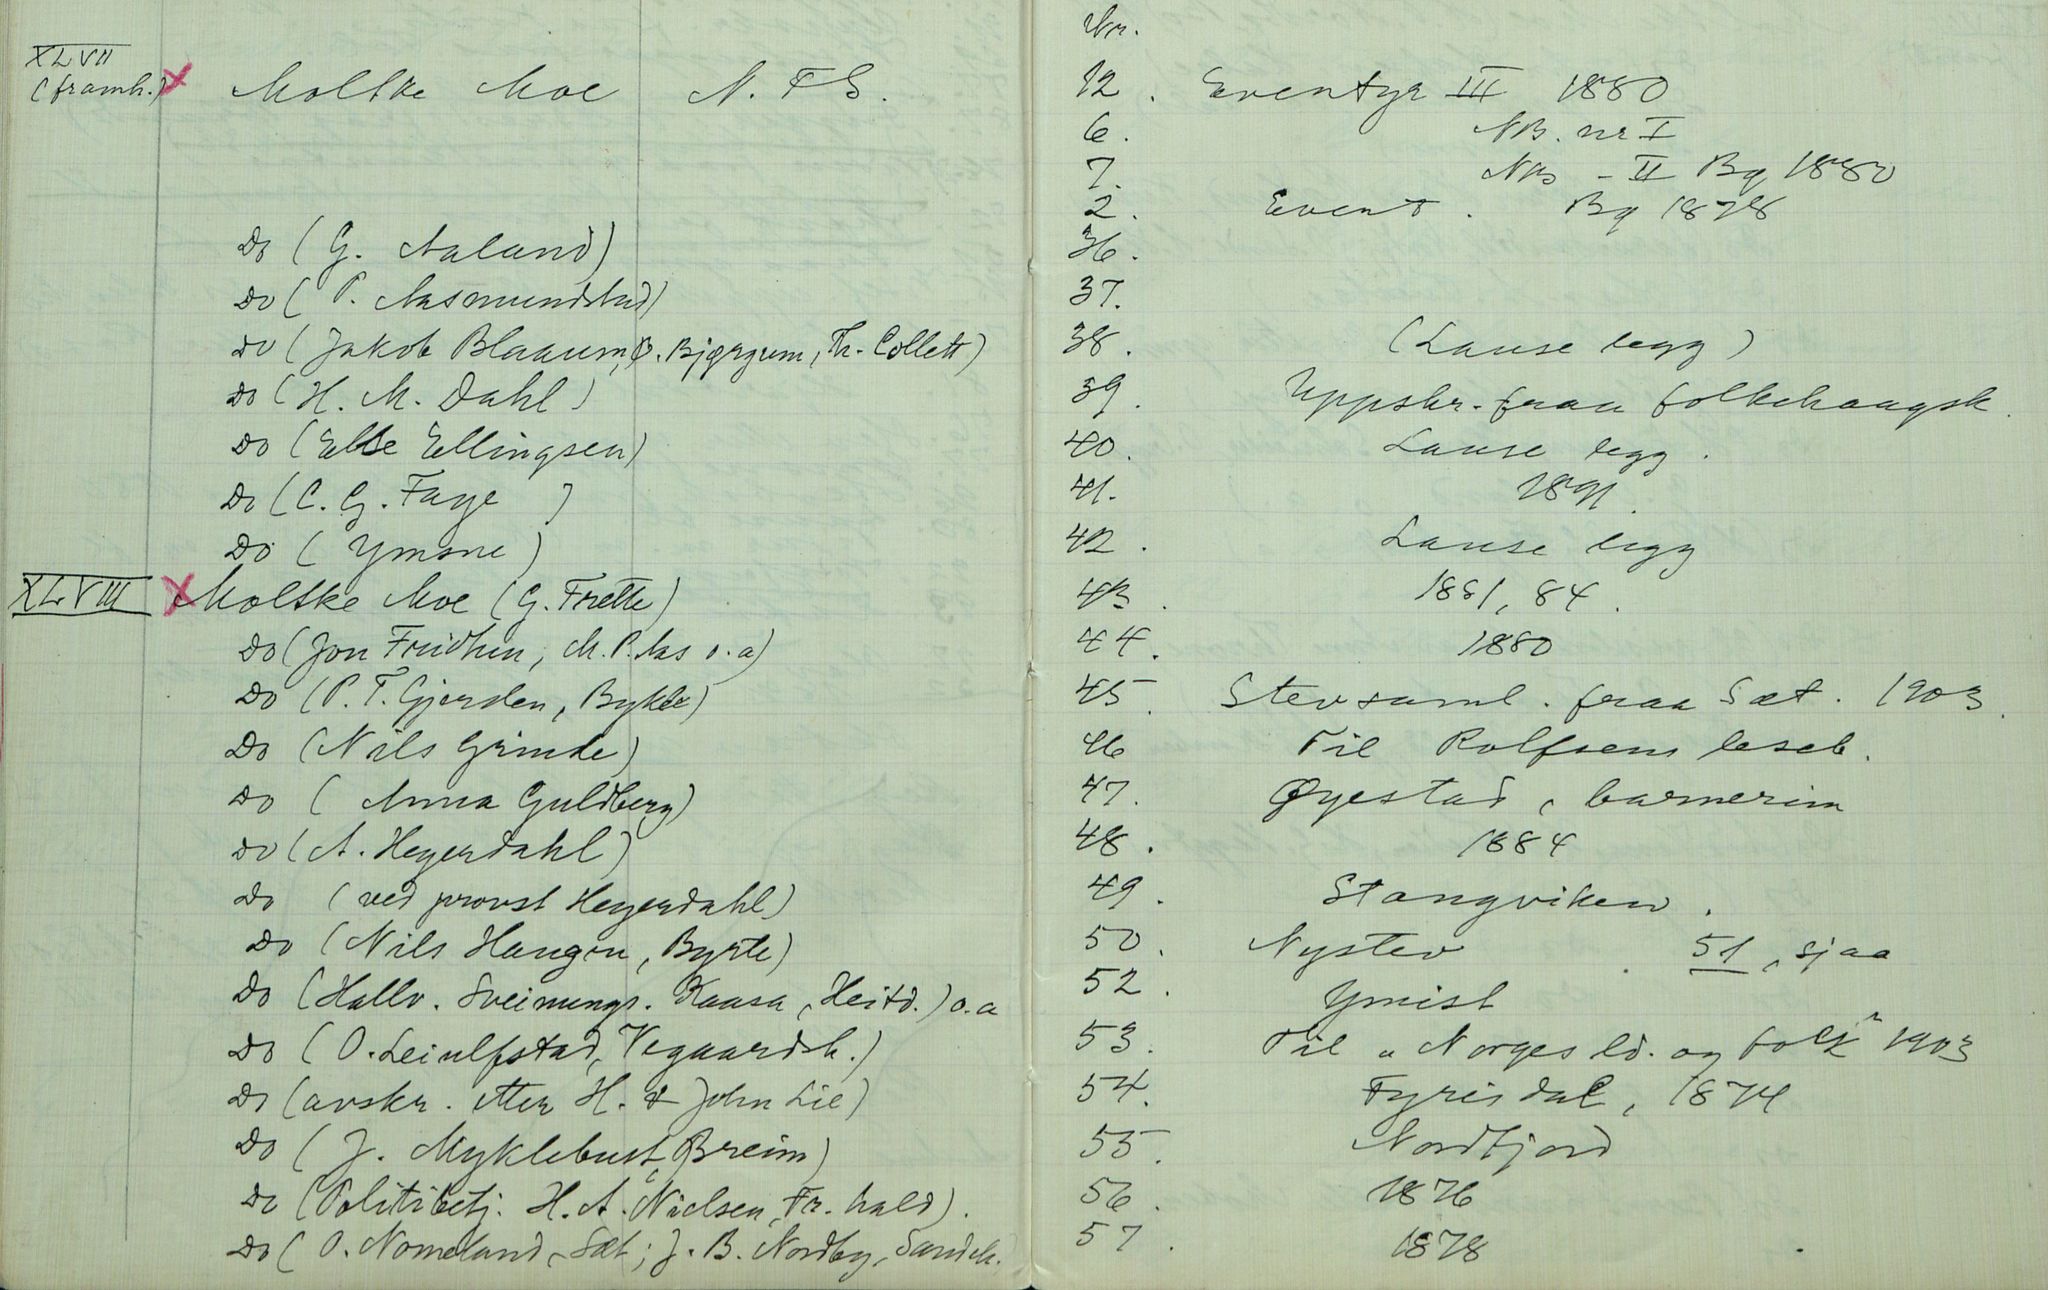 Nr.
XLVII
(framh.) x Moltke Moe N. F S. 12. Eventyr III 1880
6. NB. nr I
7. NB - II Bg 1880
2. Event. Bg 1878
Do (G. Aaland) 36.
Do (P. Aasmundstad) 37.
Do (Jakob Blaaum, O. Bjørgum, Th. Collett) 38. (Lause legg)
Do (H. M. Dahl) 39. Uppskr. fraa folkehaagsk.
Do (Else Ellingsen) 40. Lause legg.
Do (C. G. Faye) 41. 1891.
Do (Ymsne) 42. Lause legg
XLVIII x Moltke Moe (G. Frette) 43. 1881, 84.
Do (Jon Fridhen, M. P. Aas o. a) 44. 1880
Do (P. T. Gjersden, Bykle) 45. Stevsaml. fraa Sæt. 1903.
Do (Nils Grimde) 46 Til Rolfsens leseb.
Do (Anna Guldberg) 47. Øyestad, barnerim
Do (A. Heyerdahl) 48. 1884
Do (ved provst Heyerdahl) 49. Stangviken.
Do (Nils Haugen, Byrte) 50. Nystev. 51, sjaa
Do (Hallv. Sveinungs. Kaasa, Heitd.) o. a 52. Ymist
Do (O. Leiulfstad, Vegaardsh.) 53. Til "Norges ld. og folk" 1903
Do (avskr. etter H. & John Lie) 54. Fyrisdal, 1874
Do (J. Myklebust, Breim) 55. Nordfjord
Do (Politibetj. H. A. Nielsen, Fr. hald). 56. 1876
Do (O. Nomeland, Sæt; J. B. Nordby, Sandeh. 57. 1878